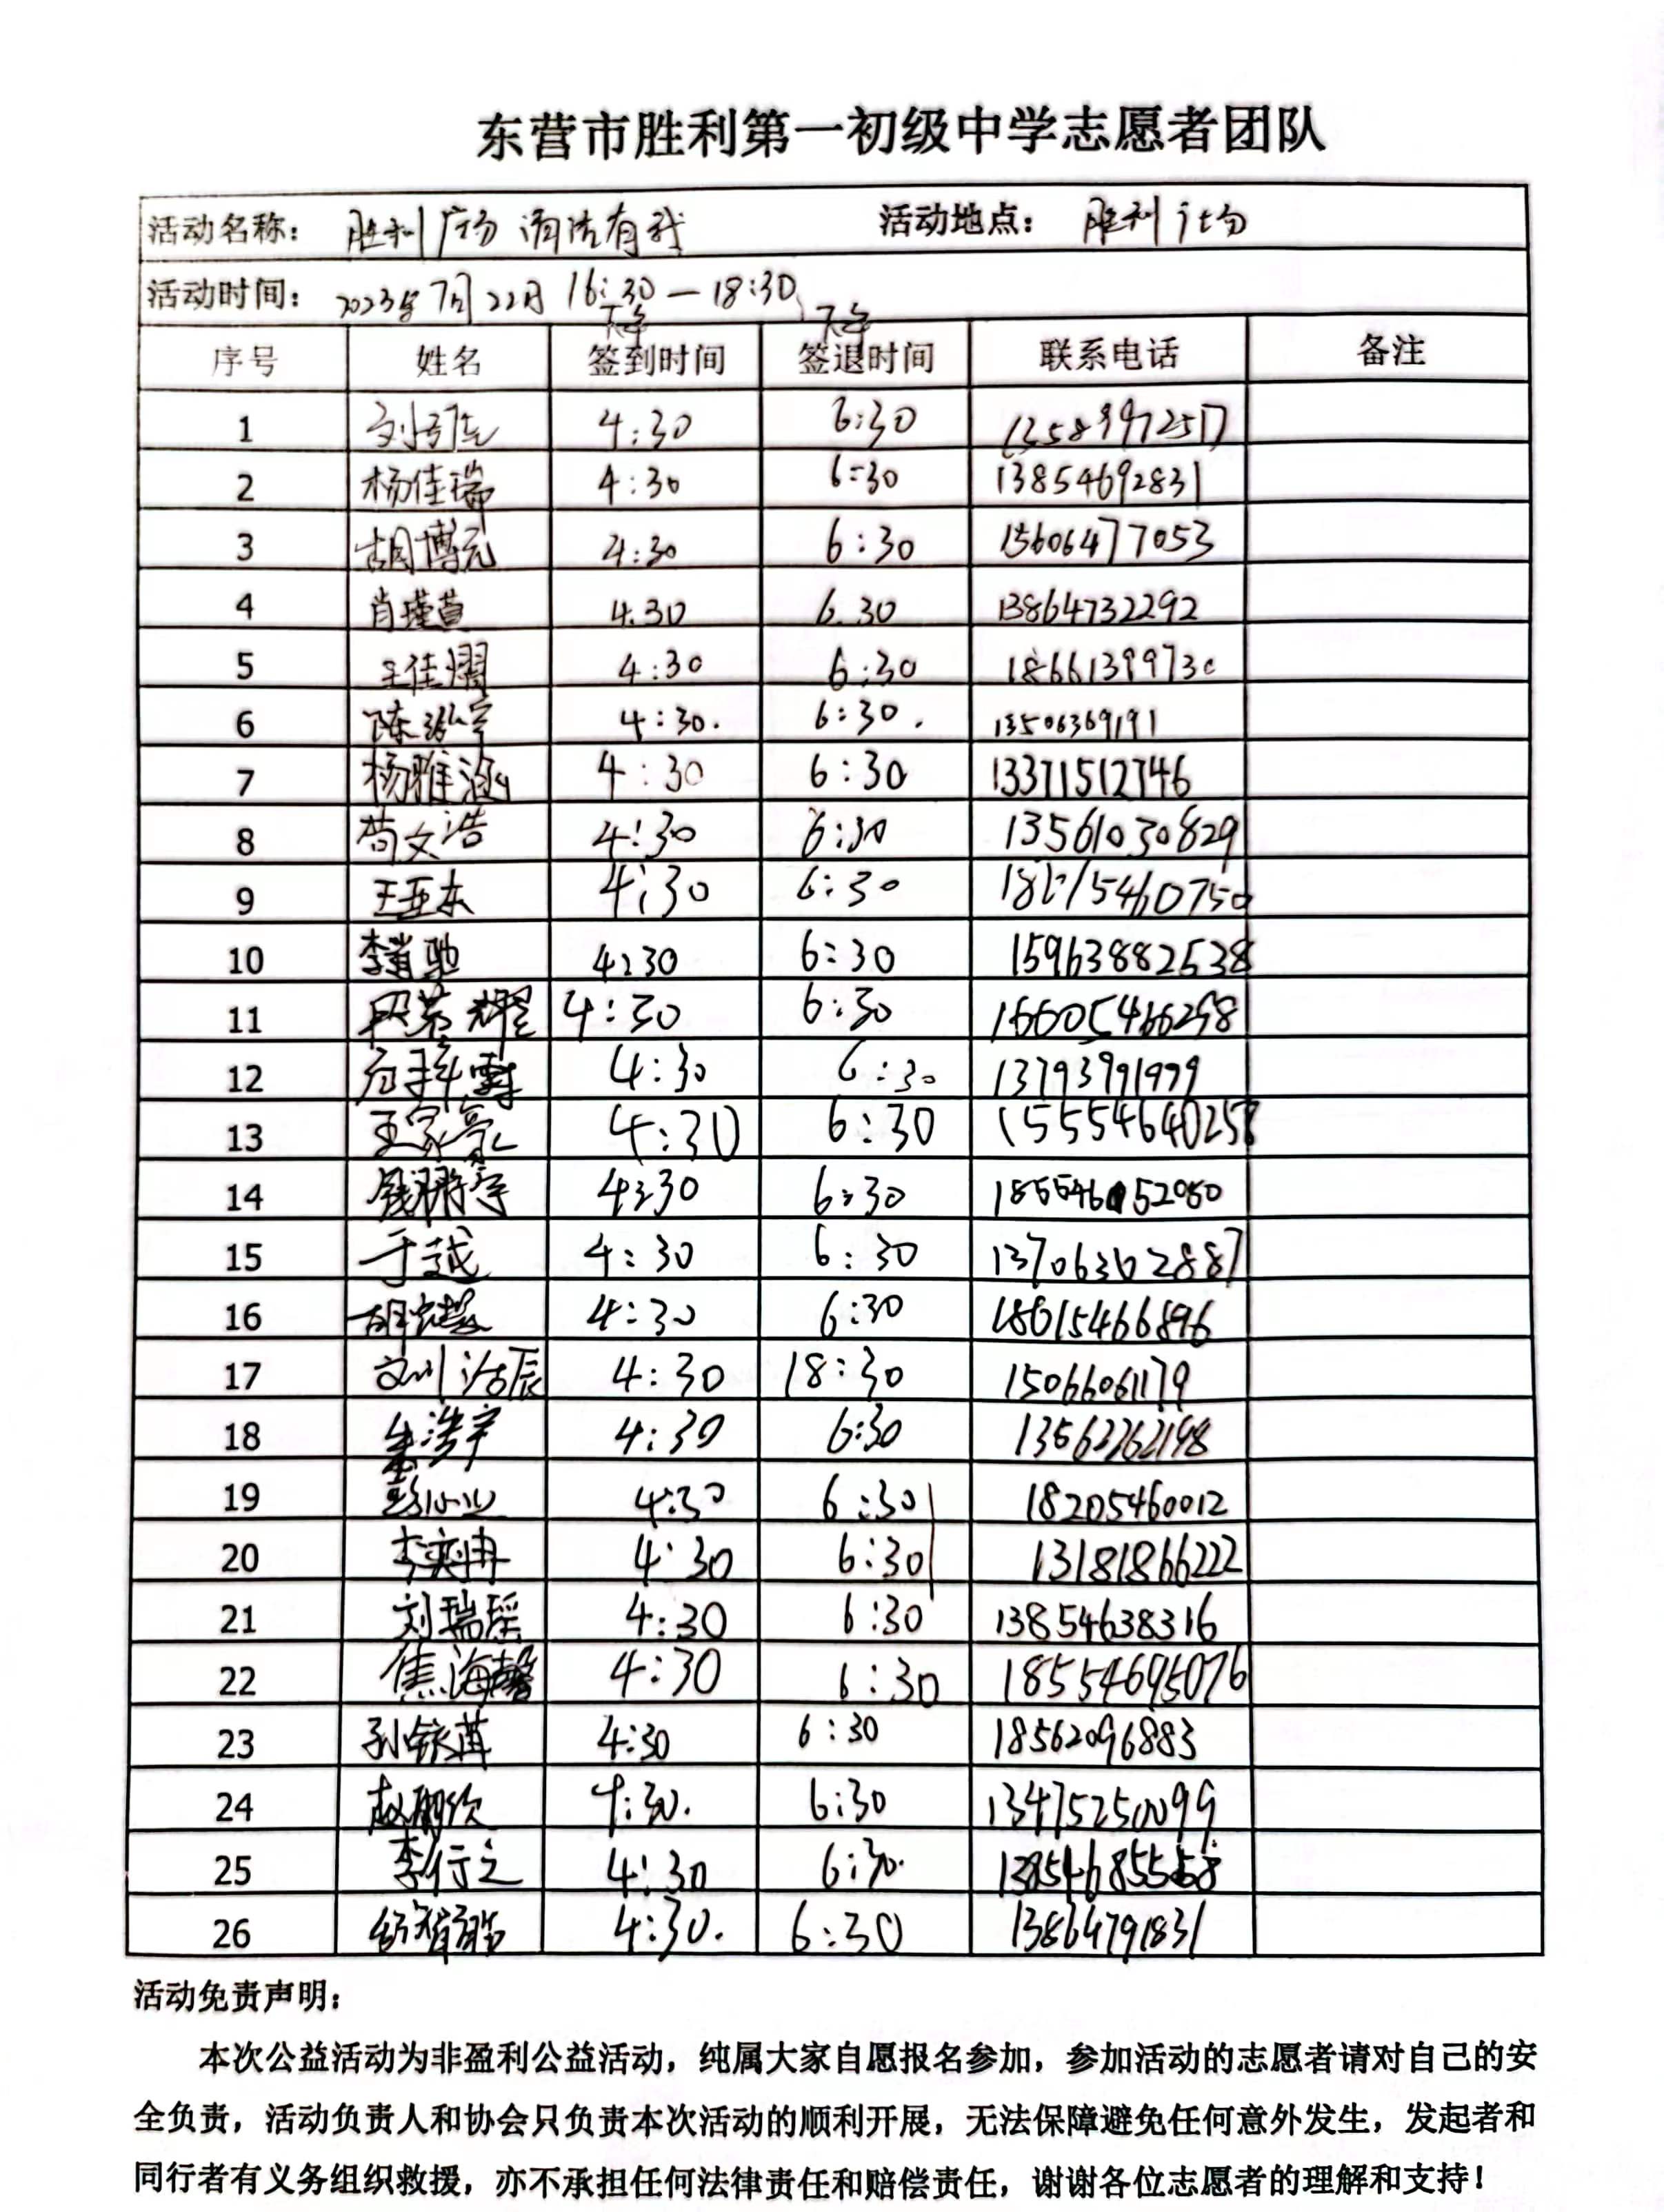 东营市胜利第一初级中学志愿者团队
活动名称： 胜利广场 清洁有我 活动地点： 胜利广场
活动时间： 2023年7月22日 16:30—18:30
下午 下午
序号 姓名 签到时间 签退时间 联系电话 备注
1 4:30 6:30
2 杨佳瑞 4:30 6:30 13854692831
3 胡博元 4:30 6:30 15606477053
4 肖瑾萱 4:30 6:30 13864732292
5 王佳熠 4:30 6:30 18661399730
6 陈泓宇 4:30. 6:30. 13506369191
7 杨雅涵 4:30 6:30 13371512746
8 苟文浩 4:30 6:30 13561030829
9 王亚东 4:30 6:30
10 李肖驰 4:30 6:30 15963882538
11 段荣耀 4:30 6:30 16605466298
12 4:30 6:30 13793991999
13 王家豪 4:30 6:30 15554640258
14 4:30 6:30
15 于越 4:30 6:30 13706362887
16 4:30 6:30 18615466896
17 刘浩辰 4:30 18:30 15066061179
18 朱浩宇 4:30 6:30 13563262198
19 4:30 6:30 18205460012
20 李奕冉 4:30 6:30 13181866222
21 刘瑞瑶 4:30 6:30 13854638316
22 焦海馨 4:30 6:30 18554695076
23 4:30 6:30 18562096883
24 4:30. 6:30 13475250099
25 李行之 4:30 6:30.
26 4:30. 6:30 13864791831
活动免责声明：
本次公益活动为非盈利公益活动，纯属大家自愿报名参加，参加活动的志愿者请对自己的安
全负责，活动负责人和协会只负责本次活动的顺利开展，无法保障避免任何意外发生，发起者和
同行者有义务组织救援，亦不承担任何法律责任和赔偿责任，谢谢各位志愿者的理解和支持！